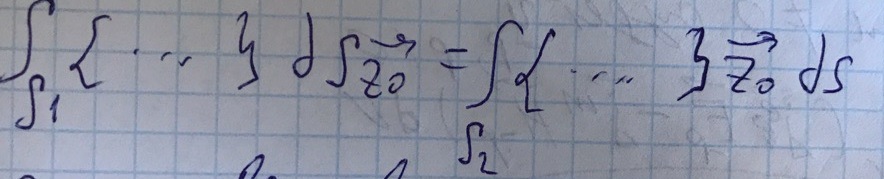 ∫_{S_1} { ... } dS \vec{z_0} = ∫_{S_2} { ... } \vec{z_0} dS